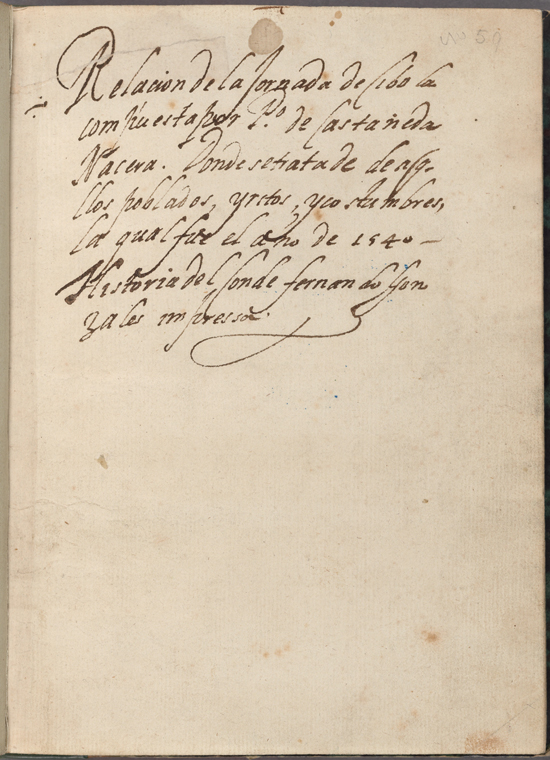 no 50
Relacion de la Jornada de Cibola
compuesta por P.o de Castañeda
Nacera. Donde se trata de aq-
llos poblados, y ritos, y costumbres,
la qual fue el año de 1540 –
Historia del Conde fernando Gon
zales impressa.